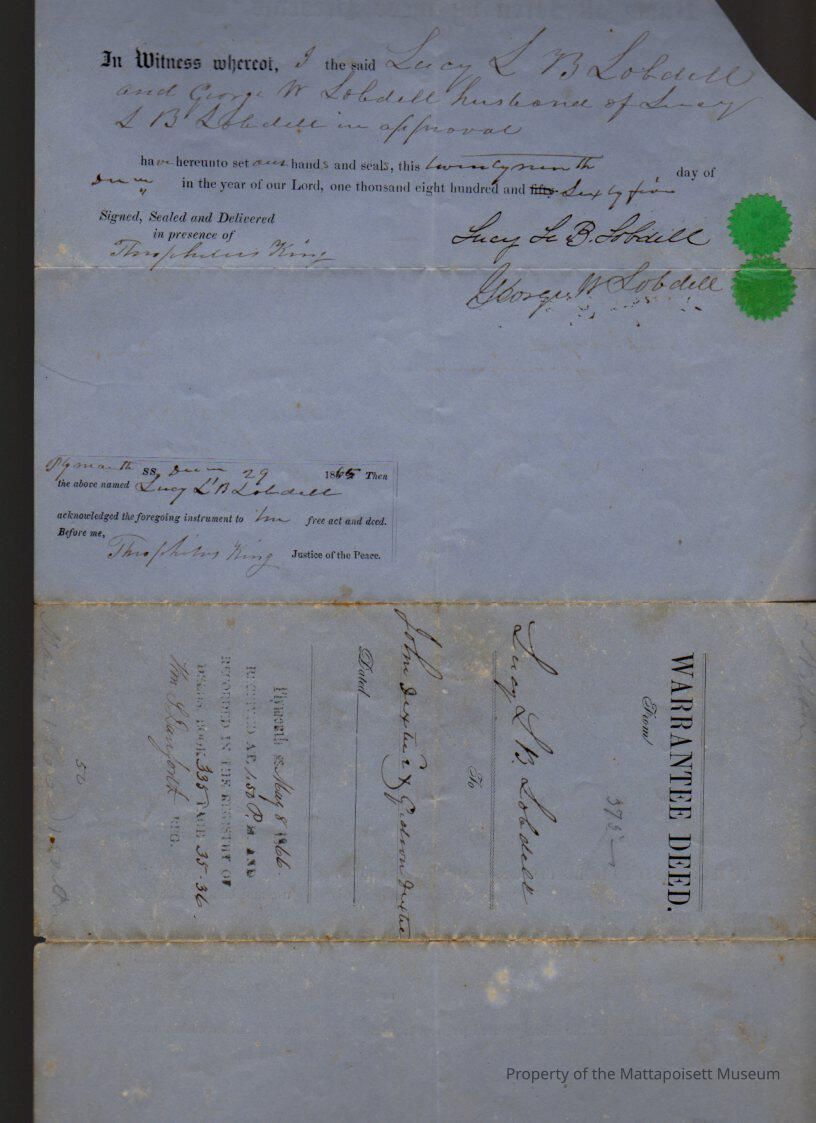 In Witness whereof, I the said Lucy L B Lobdell
and George W Lobdell husband of Lucy
L B Lobdell in approval
have hereunto set our hands and seals, this twenty ninth day of
in the year of our Lord, one thousand eight hundred and fifty Sixty five
Signed, Sealed and Delivered
in presence of
Theophilus King
Lucy L. B. Lobdell
George W Lobdell
Plymouth ss, 29 1865 Then
the above named Lucy L B Lobdell
acknowledged the foregoing instrument to free act and deed.
Before me,
Theophilus King Justice of the Peace.
WARRANTEE DEED.
From
375
Lucy L B. Lobdell
To
John Dexter & Gideon Dexter
Dated
Plymouth ss May 8 1866.
RECEIVED AT 1.50 P. M AND
RECORDED IN THE REGISTRY OF
DEEDS, BOOK 335 PAGE 35-36.
Wm S. Danforth REG.
50
Property of the Mattapoisett Museum